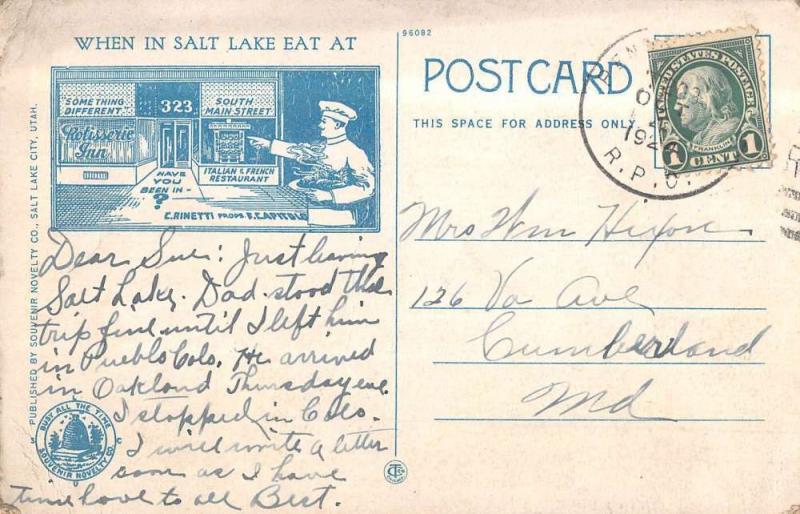 WHEN IN SALT LAKE EAT AT
SOMETHING DIFFERENT
Rotisserie Inn
323
SOUTH MAIN STREET
HAVE YOU BEEN IN - ?
ITALIAN & FRENCH RESTAURANT
C. RINETTI PROPS. F. CAPITOLO
PUBLISHED BY SOUVENIR NOVELTY CO., SALT LAKE CITY, UTAH.
Dear Sue: Just leaving
Salt Lake. Dad stood the
trip fine until I left him
in Pueblo Colo. He arrived
in Oakland Thursday eve
I stopped in Colo.
I will write a letter
soon as I have
time love to all Best.
BUSY ALL THE TIME
SOUVENIR NOVELTY CO.
96082
POST CARD
THIS SPACE FOR ADDRESS ONLY
R.P.O.
UNITED STATES POSTAGE
FRANKLIN
1 CENT 1
Mrs Wm Hixon
126 Va Ave
Cumberland
Md